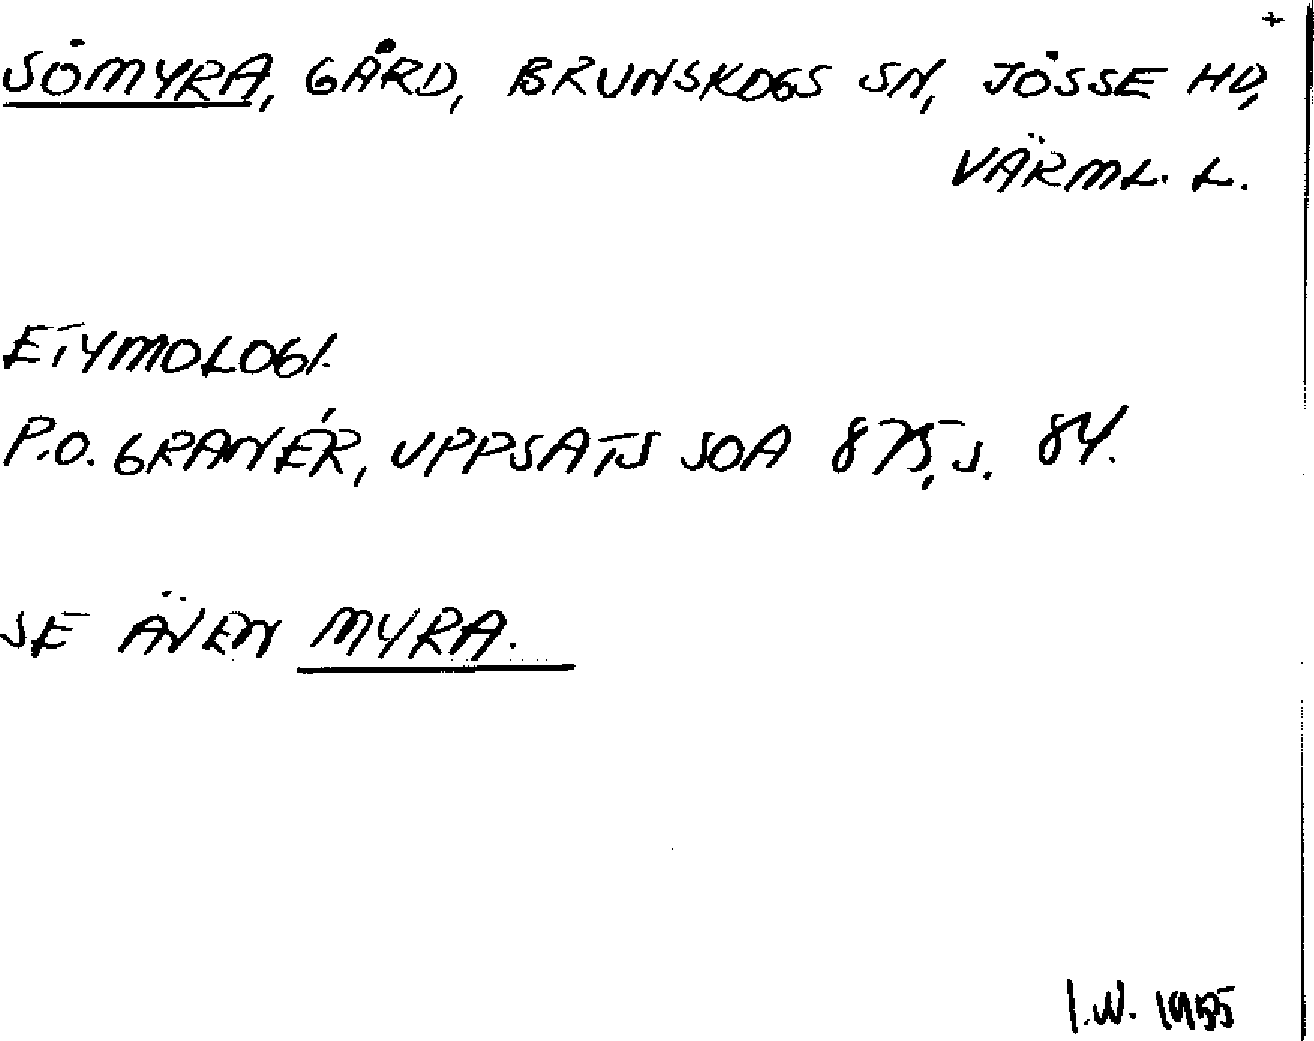 +
SÖMYRA, GÅRD, BRUNSKOGS SN, JÖSSE HD,
VÄRML. L.
ETYMOLOGI.
P.O. GRANÉR, UPPSATS SOA 875, S. 84.
SE ÄVEN MYRA.
I.W. 1955